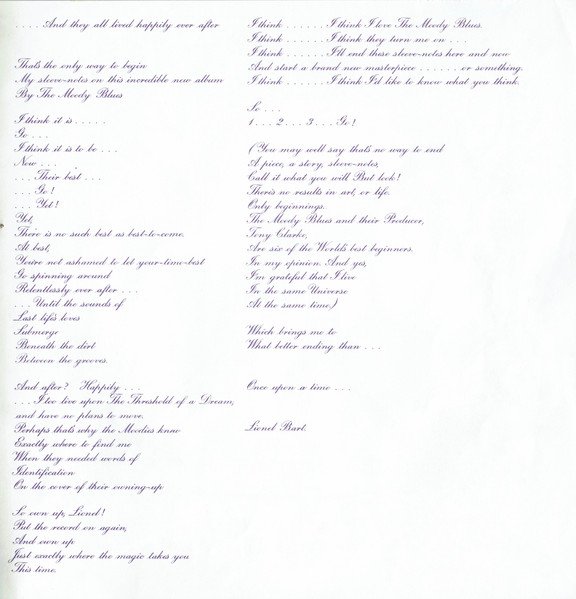 . . . . And they all lived happily ever after
Thats the only way to begin
My sleeve-notes on this incredible new album
By The Moody Blues
I think it is . . . . .
Go . . .
I think it is to be . . .
Now . . .
. . . Their best . . .
. . . Go !
. . . Yet !
Yet,
There is no such best as best-to-come.
At best,
You're not ashamed to let your-time-best
Go spinning around
Relentlessly ever after . . .
. . . Until the sounds of
Last life's loves
Submerge
Beneath the dirt
Between the grooves.
And after ? Happily . . .
. . . I too live upon The Threshold of a Dream,
and have no plans to move.
Perhaps that's why the Moodies know
Exactly where to find me
When they needed words of
Identification
On the cover of their owning-up
So own up, Lionel !
Put the record on again,
And own up
Just exactly where the magic takes you
This time.
I think . . . . . . . I think I love The Moody Blues.
I think . . . . . . . I think they turn me on . . .
I think . . . . . . . I'll end these sleeve-notes here and now
And start a brand new masterpiece . . . . . . . or something.
I think . . . . . . . I think I'd like to know what you think.
So . . .
1 . . . 2 . . . 3 . . . Go !
( You may well say that's no way to end
A piece, a story, sleeve-notes,
Call it what you will But look !
There's no results in art, or life.
Only beginnings.
The Moody Blues and their Producer,
Tony Clarke,
Are six of the World's best beginners.
In my opinion. And yes,
I'm grateful that I live
In the same Universe
At the same time.)
Which brings me to
What better ending than . . .
Once upon a time . . .
Lionel Bart.